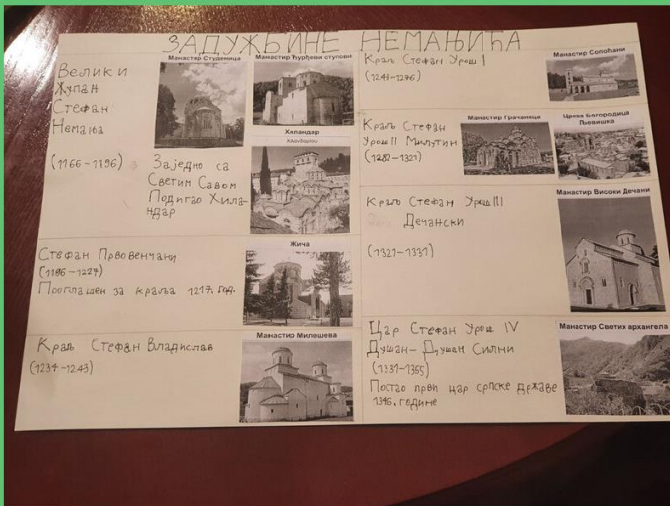 ЗАДУЖБИНЕ НЕМАЊИЋА
Велики
Жупан
Стефан
Немања
(1166-1196)
Манастир Студеница
Манастир Ђурђеви ступови
Хиландар
Заједно са
Светим Савом
Подигао Хилан-
дар
Стефан Првовенчани
(1196-1227)
Проглашен за краља 1217. год.
Жича
Краљ Стефан Владислав
(1234-1243)
Манастир Милешева
Краљ Стефан Урош I
(1243-1276)
Манастир Сопоћани
Краљ Стефан
Урош II Милутин
(1282-1321)
Манастир Грачаница
Црква Богородица
Љевишка
Краљ Стефан Урош III
Дечански
(1321-1331)
Манастир Високи Дечани
Цар Стефан Урош IV
Душан-Душан Силни
(1331-1355)
Постао први цар српске државе
1346. године
Манастир Светих архангела